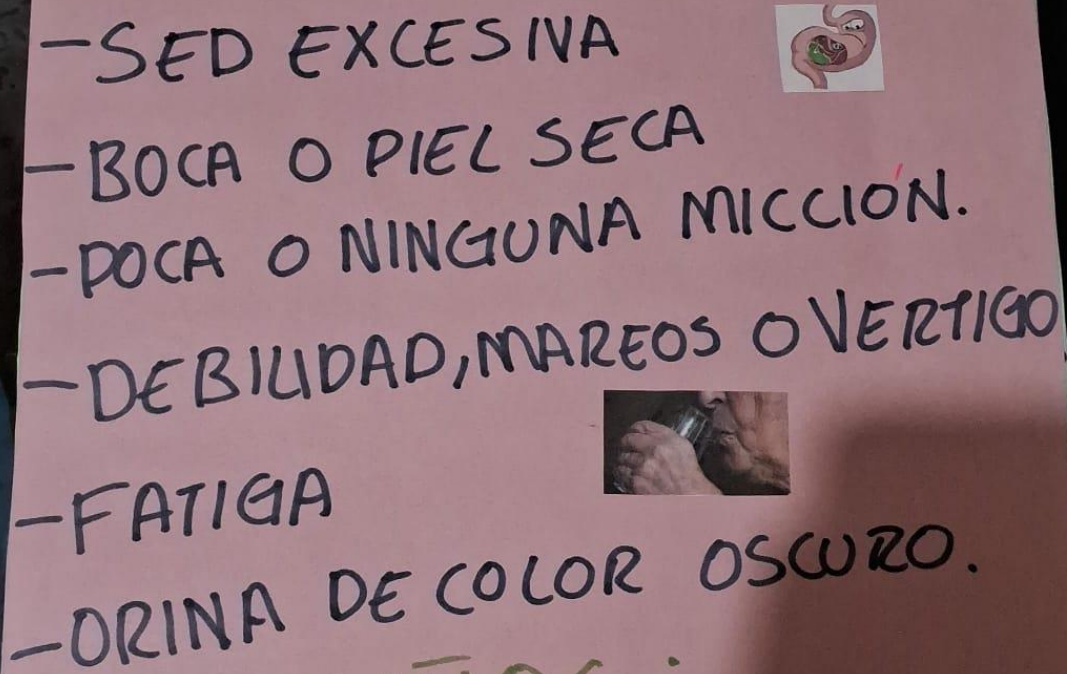 -SED EXCESIVA
-BOCA O PIEL SECA
-POCA O NINGUNA MICCIÓN.
-DEBILIDAD, MAREOS O VERTIGO
-FATIGA
-ORINA DE COLOR OSCURO.